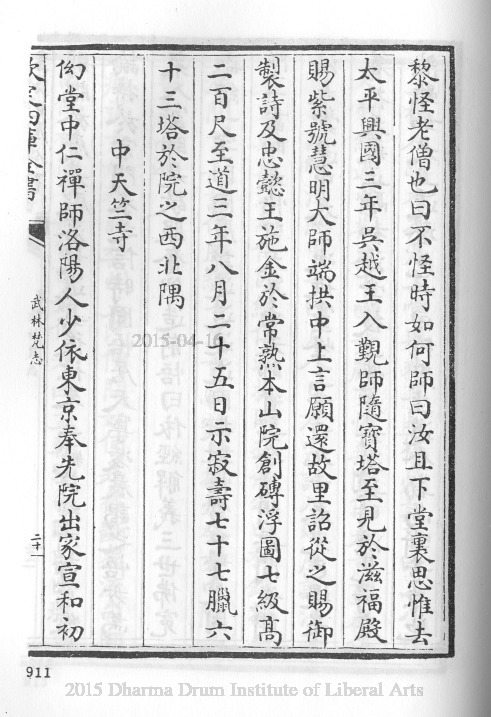 黎怪老僧也曰不怪時如何師曰汝且下堂裏思惟去
太平興國三年吳越王入覲師隨寶塔至見於滋福殿
賜紫號慧明大師端拱中上言願還故里詔從之賜御
製詩及忠懿王施金於常熟本山院創磚浮圖七級高
二百尺至道三年八月二十五日示寂壽七十七臘六
十三塔於院之西北隅
中天竺寺
㓜堂中仁禪師洛陽人少依東京奉先院出家宣和初
欽定四庫全書
武林梵志
二十一
2015-04-10
911
2015 Dharma Drum Institute of Liberal Arts